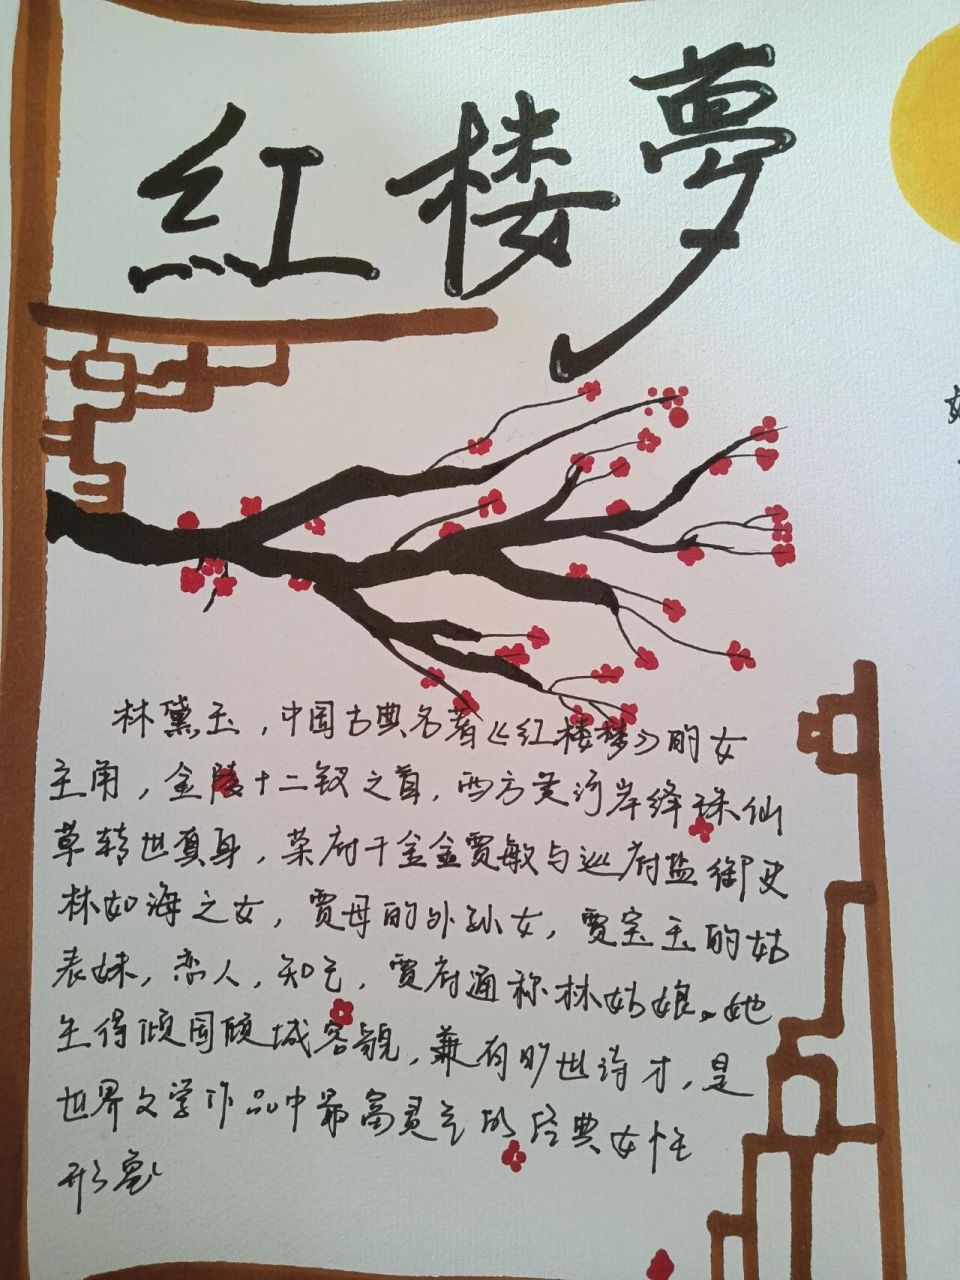 紅楼夢
林黛玉，中国古典名著《红楼梦》的女
主角，金陵十二钗之首，西方灵河岸绛珠仙
草转世真身，荣府千金金贾敏与巡府盐御史
林如海之女，贾母的外孙女，贾宝玉的姑
表妹，恋人，知己，贾府通称林姑娘。她
生得倾国倾城容貌，兼有旷世诗才，是
世界文学作品中最富灵气的经典女性
形象